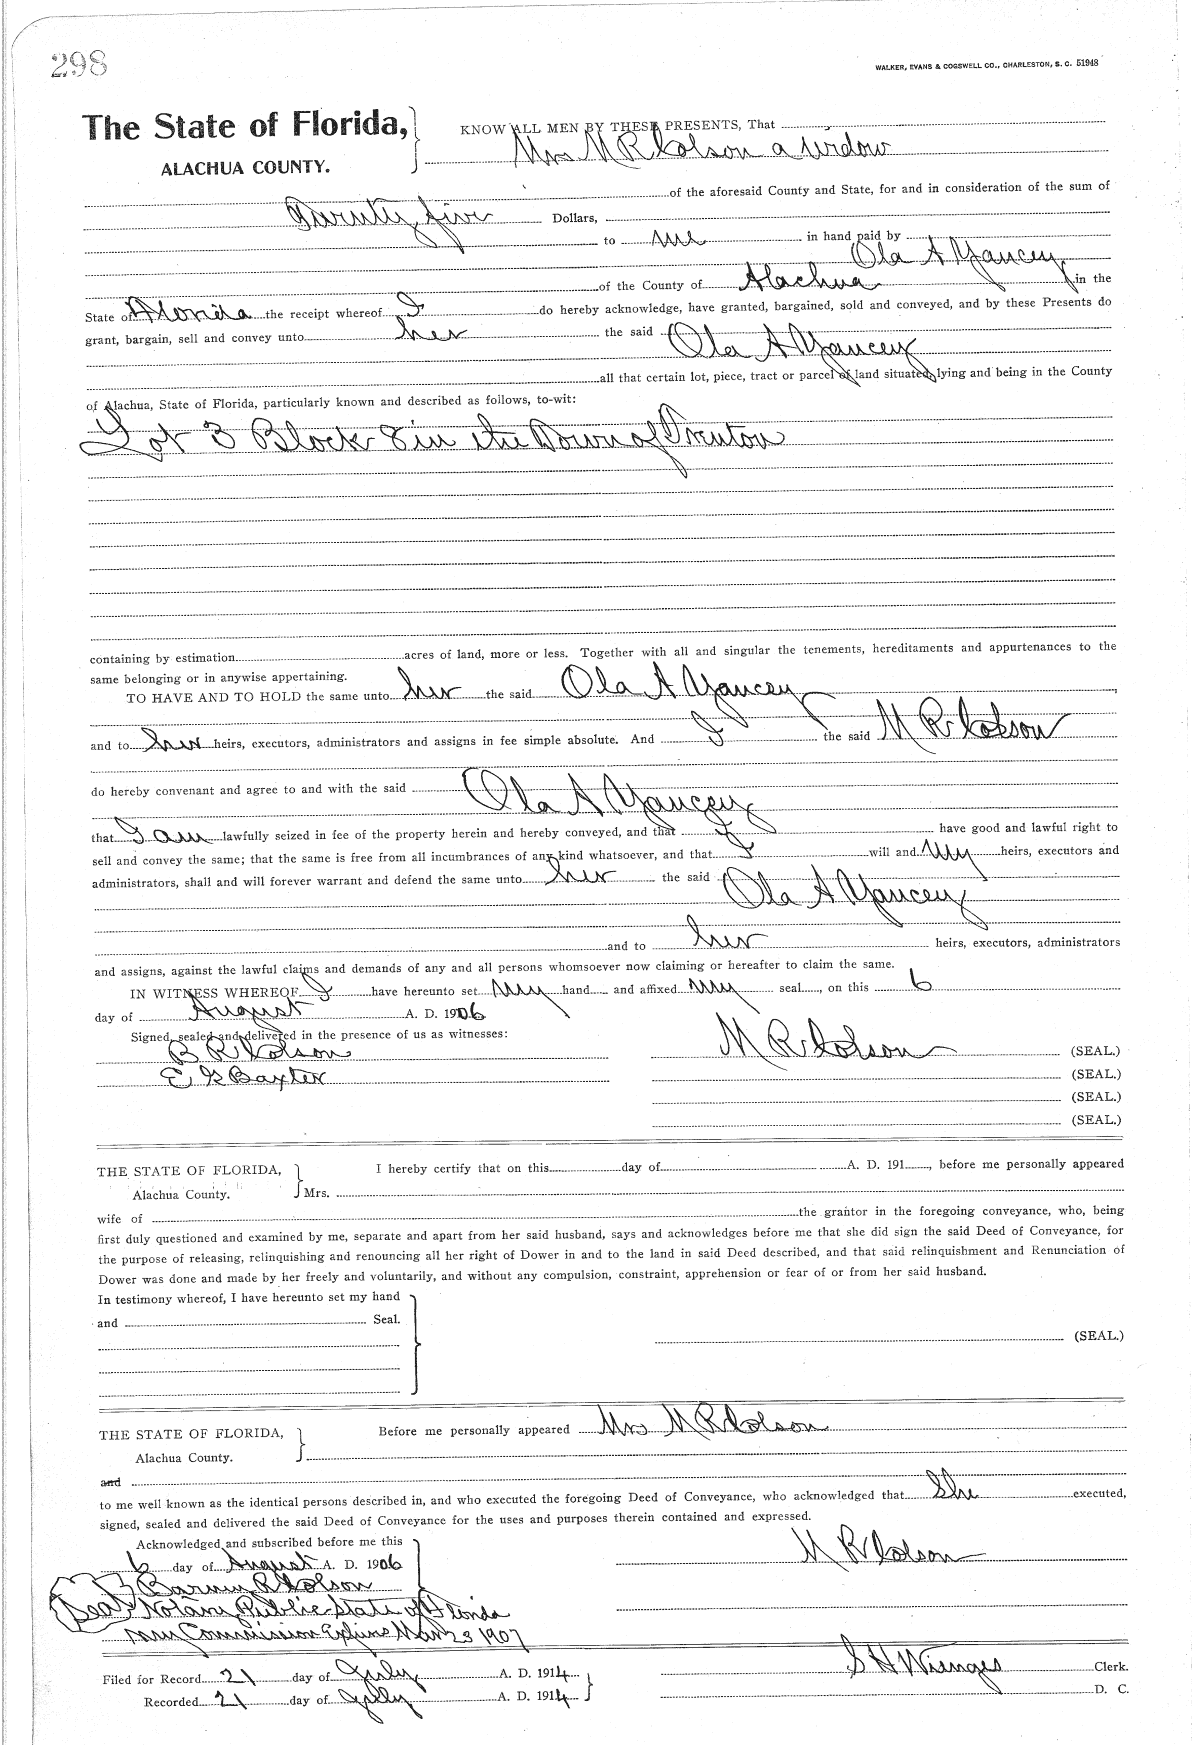 298
WALKER, EVANS & COGSWELL CO., CHARLESTON, S. C. 51948
The State of Florida,
ALACHUA COUNTY.
KNOW ALL MEN BY THESE PRESENTS, That
Mrs M R Colson a widow
of the aforesaid County and State, for and in consideration of the sum of
Twenty five Dollars,
to me in hand paid by
Ola A Yancey
of the County of Alachua in the
State of Florida the receipt whereof I do hereby acknowledge, have granted, bargained, sold and conveyed, and by these Presents do
grant, bargain, sell and convey unto her the said Ola A Yancey
all that certain lot, piece, tract or parcel of land situated, lying and being in the County
of Alachua, State of Florida, particularly known and described as follows, to-wit:
Lot 3 Block 8 in the Town of Trenton
containing by estimation acres of land, more or less. Together with all and singular the tenements, hereditaments and appurtenances to the
same belonging or in anywise appertaining.
TO HAVE AND TO HOLD the same unto her the said Ola A Yancey
and to her heirs, executors, administrators and assigns in fee simple absolute. And I the said M R Colson
do hereby convenant and agree to and with the said Ola A Yancey
that I am lawfully seized in fee of the property herein and hereby conveyed, and that I have good and lawful right to
sell and convey the same; that the same is free from all incumbrances of any kind whatsoever, and that I will and my heirs, executors and
administrators, shall and will forever warrant and defend the same unto her the said Ola A Yancey
and to her heirs, executors, administrators
and assigns, against the lawful claims and demands of any and all persons whomsoever now claiming or hereafter to claim the same.
IN WITNESS WHEREOF I have hereunto set my hand and affixed my seal, on this 6
day of August A. D. 1906
Signed, sealed and delivered in the presence of us as witnesses:
B R Colson M R Colson (SEAL.)
E G Baxter (SEAL.)
(SEAL.)
(SEAL.)
THE STATE OF FLORIDA,
Alachua County.
I hereby certify that on this day of A. D. 191 , before me personally appeared
Mrs.
wife of the grantor in the foregoing conveyance, who, being
first duly questioned and examined by me, separate and apart from her said husband, says and acknowledges before me that she did sign the said Deed of Conveyance, for
the purpose of releasing, relinquishing and renouncing all her right of Dower in and to the land in said Deed described, and that said relinquishment and Renunciation of
Dower was done and made by her freely and voluntarily, and without any compulsion, constraint, apprehension or fear of or from her said husband.
In testimony whereof, I have hereunto set my hand
and Seal.
(SEAL.)
THE STATE OF FLORIDA,
Alachua County.
Before me personally appeared Mrs M R Colson
and
to me well known as the identical persons described in, and who executed the foregoing Deed of Conveyance, who acknowledged that She executed,
signed, sealed and delivered the said Deed of Conveyance for the uses and purposes therein contained and expressed.
Acknowledged and subscribed before me this
6 day of August A. D. 1906
M R Colson
Barney R Colson
Seal Notary Public State of Florida
my Commission Expires Mar 23 1907
Filed for Record 21 day of July A. D. 1914
S H Wienges Clerk.
Recorded 21 day of July A. D. 1914
D. C.